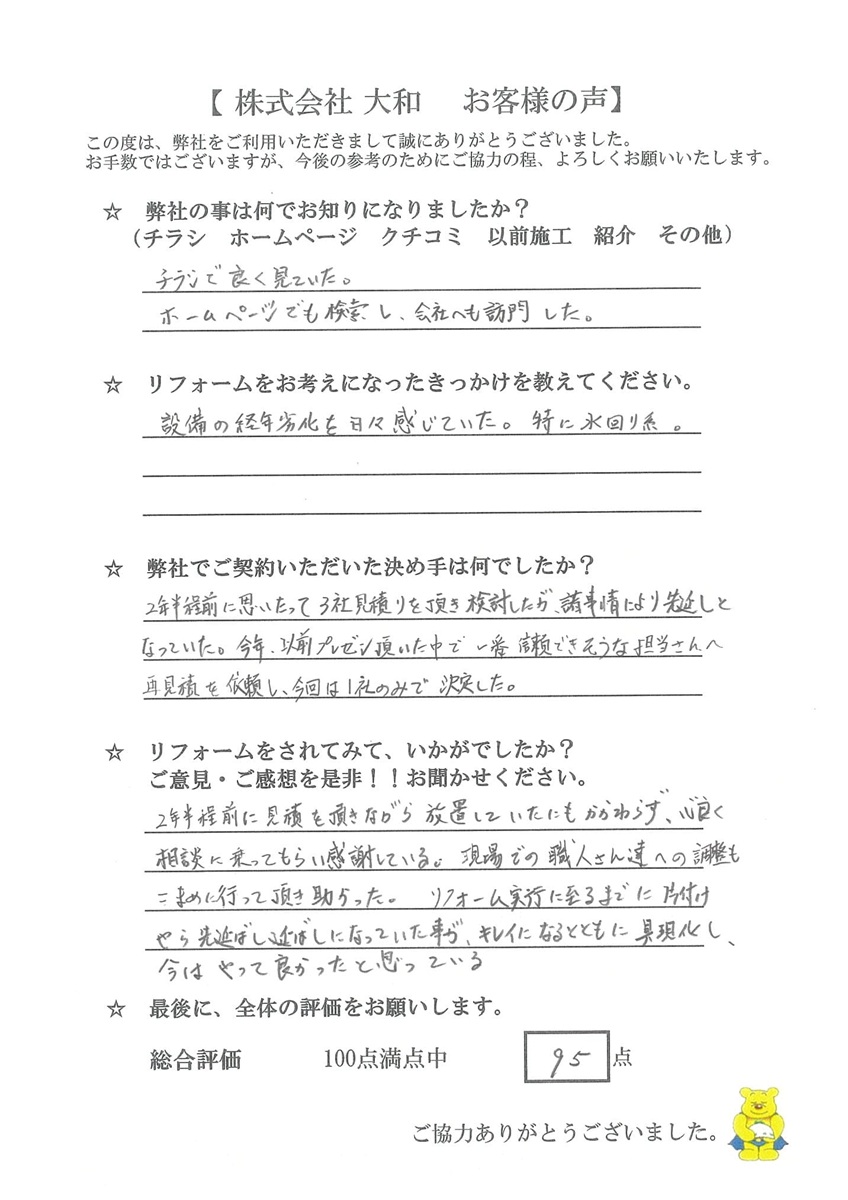 【 株式会社 大和　お客様の声】
この度は、弊社をご利用いただきまして誠にありがとうございました。
お手数ではございますが、今後の参考のためにご協力の程、よろしくお願いいたします。
☆　弊社の事は何でお知りになりましたか？
（チラシ　ホームページ　クチコミ　以前施工　紹介　その他）
チラシで良く見ていた。
ホームページでも検索し、会社へも訪問した。
☆　リフォームをお考えになったきっかけを教えてください。
設備の経年劣化を日々感じていた。特に水回り系。
☆　弊社でご契約いただいた決め手は何でしたか？
2年半程前に思いたって3社見積りを頂き検討したが、諸事情により先延しと
なっていた。今年、以前プレゼン頂いた中で一番信頼できそうな担当さんへ
再見積を依頼し、今回は1社のみで決定した。
☆　リフォームをされてみて、いかがでしたか？
ご意見・ご感想を是非！！お聞かせください。
2年半程前に見積を頂きながら放置していたにもかかわらず、心良く
相談に乗ってもらい感謝している。現場での職人さん達への調整も
こまめに行って頂き助かった。リフォーム実行に至るまでに片付け
やら先延ばし延ばしになっていた事が、キレイになるとともに具現化し、
今はやって良かったと思っている
☆　最後に、全体の評価をお願いします。
総合評価　100点満点中　95点
ご協力ありがとうございました。